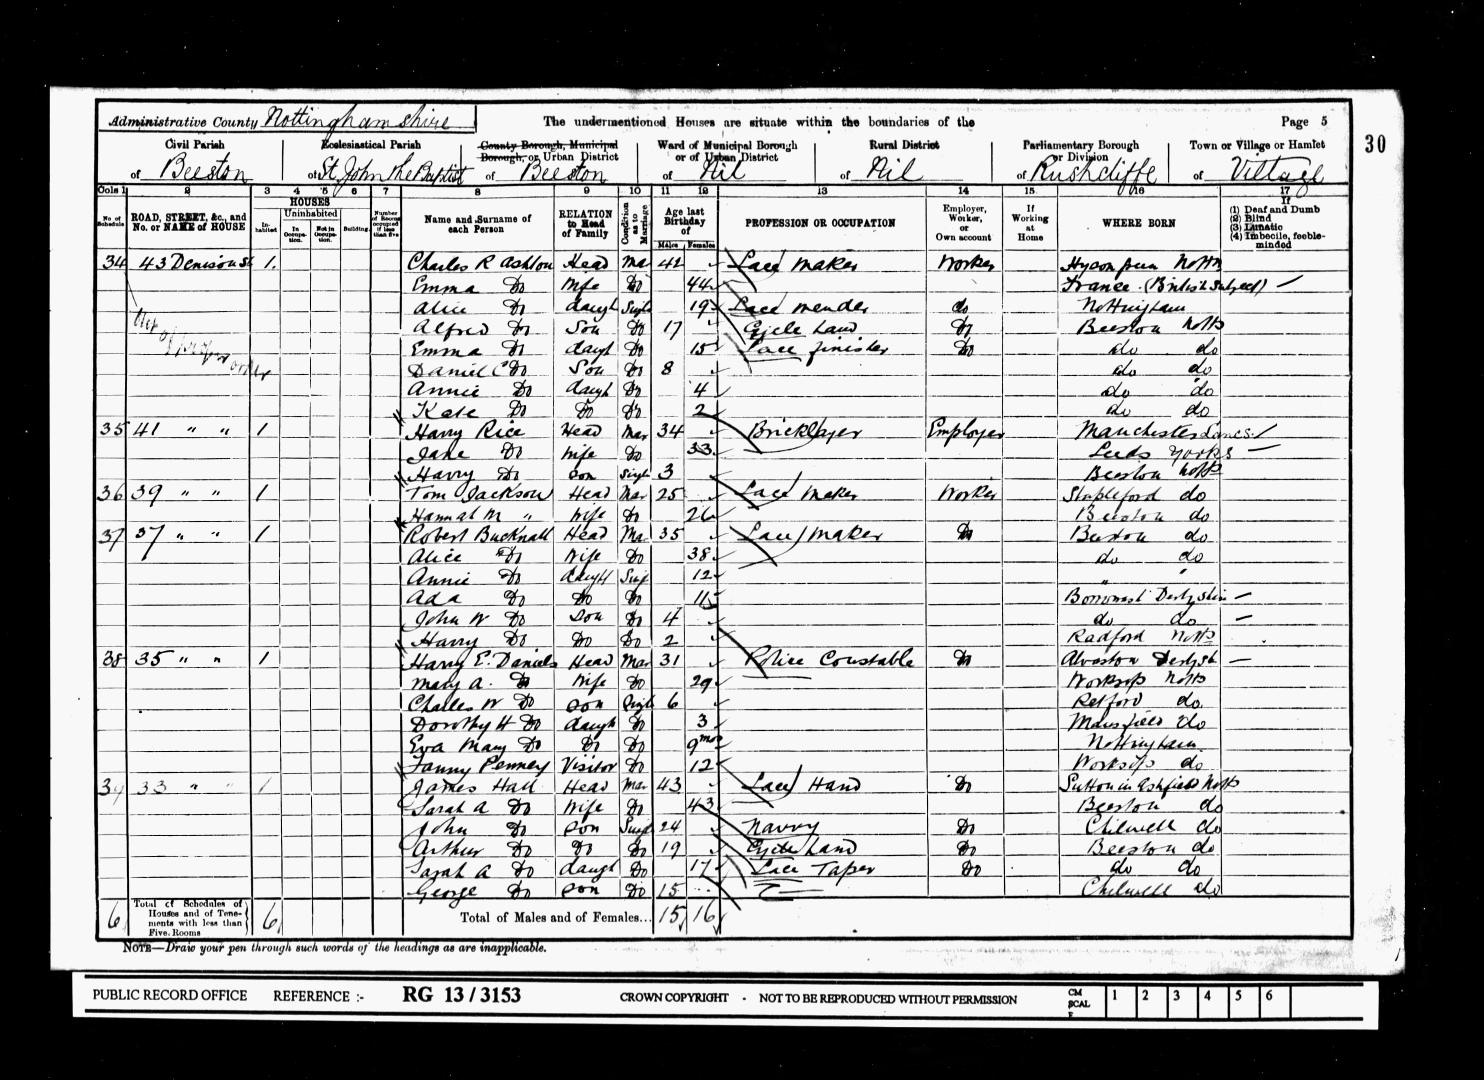 Administrative County Nottinghamshire The undermentioned Houses are situate within the boundaries of the Page 5
30
Civil Parish Ecclesiastical Parish County Borough, Municipal Borough, or Urban District Ward of Municipal Borough or of Urban District Rural District Parliamentary Borough or Division Town or Village or Hamlet
of Beeston of St John the Baptist of Beeston of Nil of Nil of Rushcliffe of Village
Cols 1 2 3 4 5 6 7 8 9 10 11 12 13 14 15 16 17
No. of Schedule ROAD, STREET, &c., and No. or NAME of HOUSE HOUSES Inhabited Uninhabited In Occupation. Not in Occupation. Building Number of Rooms occupied if less than five Name and Surname of each Person RELATION to Head of Family Condition as to Marriage Age last Birthday of Males Females PROFESSION OR OCCUPATION Employer, Worker, or Own account If Working at Home WHERE BORN If (1) Deaf and Dumb (2) Blind (3) Lunatic (4) Imbecile, feeble-minded
34 43 Denison St 1. Charles R Ashton Head Mar 42 Lace maker Worker Notts
Emma Do Wife Do 44 France (British Subject)
Alice Do daugh Single 19 Lace mender do Nottingham
out of proper order
Alfred Do Son Do 17 Cycle hand Do Beeston Notts
Emma Do daugh Do 15 Lace finisher Do do do
Daniel C Do Son Do 8 do do
Annie Do daugh Do 4 do do
Kate Do Do Do 2 do do
35 41 " " 1 Harry Rice Head Mar 34 Bricklayer Employer Manchester Lancs
Jane Do Wife Do 33 Leeds Yorks
Harry Do Son Single 3 Beeston Notts
36 39 " " 1 Tom Jackson Head Mar 25 Lace Maker Worker Stapleford do
Hannah M " Wife Do 26 Beeston do
37 37 " " 1 Robert Bucknall Head Mar 35 Lace maker Do Beeston do
Alice Do Wife Do 38 do do
Annie Do daugh Sing 12 " "
Ada Do Do Do 11 Borrowash Derbyshire
John W Do Son Do 4 do do
Harry Do Do Do 2 Radford Notts
38 35 " " 1 Harry E. Daniels Head Mar 31 Police Constable Do Alvaston Derbysh
Mary A. Do Wife Do 29 Worksop Notts
Charles W Do Son Singl 6 Retford do.
Dorothy H Do daugh Do 3 Mansfield do
Eva Mary Do Do Do 9 mos Nottingham
Fanny Penney Visitor Do 12 Worksop do
39 33 " " 1 James Hall Head Mar 43 Lace Hand Do Sutton in Ashfield Notts
Sarah A Do Wife Do 43 Beeston do
John Do Son Singl 24 Navvy Do Chilwell do
Arthur Do Do Do 19 Cycle hand Do Beeston do
Sarah A Do daugh Do 17 Lace Taper Do do do
George Do Son Do 15 Chilwell do
6 Total of Schedules of Houses and of Tenements with less than Five Rooms 6 Total of Males and of Females... 15 16
NOTE—Draw your pen through such words of the headings as are inapplicable.
PUBLIC RECORD OFFICE REFERENCE :- RG 13/3153 CROWN COPYRIGHT - NOT TO BE REPRODUCED WITHOUT PERMISSION CM SCALE 1 2 3 4 5 6